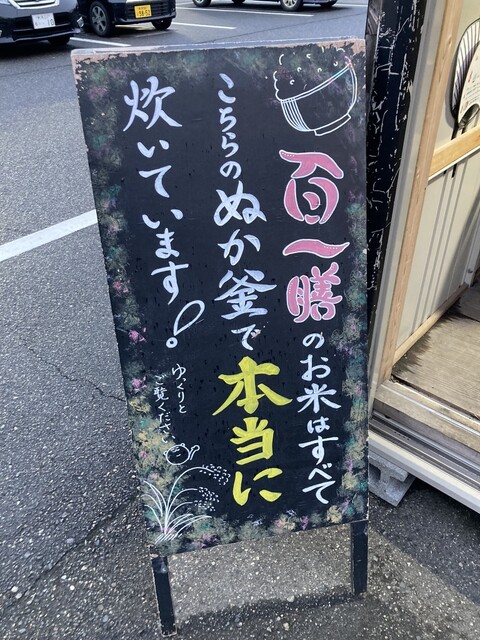 百一膳のお米はすべて
こちらのぬか釜で本当に
炊いています!
ゆっくりと
ご覧ください